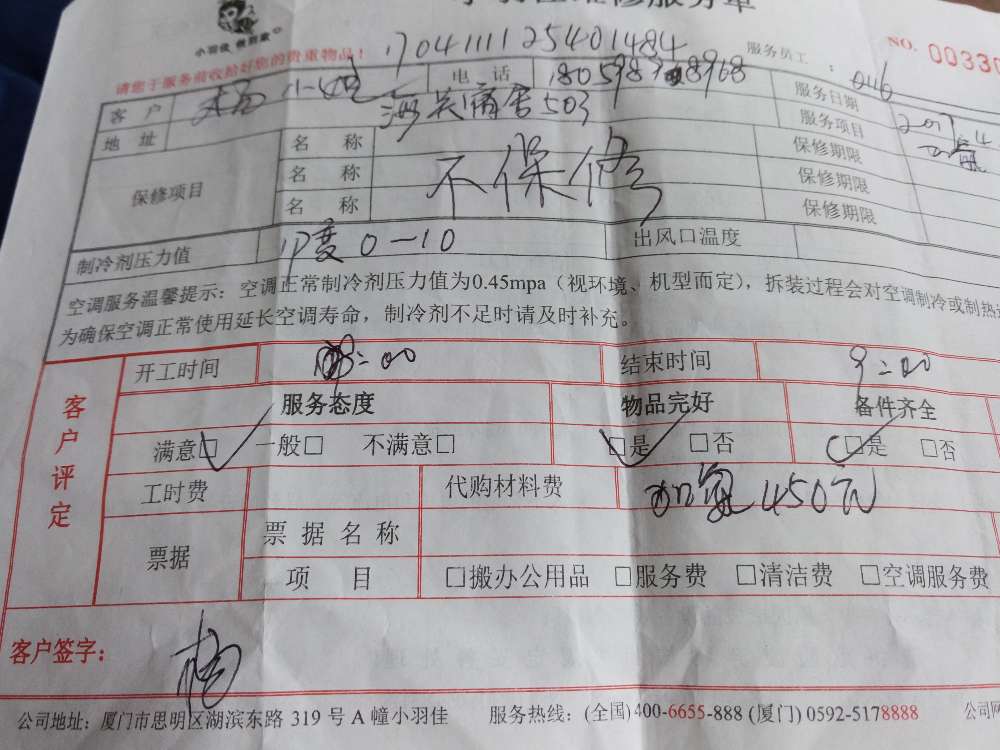 维修服务单
小羽佳 悦万家
NO. 00330
17041111125401484
服务员工：046
请您于服务前收拾好您的贵重物品！
客户 杨小姐 电话 服务日期
地址 海关宿舍503 服务项目
保修项目 名称 不保修 保修期限
名称 保修期限
名称 保修期限
制冷剂压力值 0-10 出风口温度
空调服务温馨提示：空调正常制冷剂压力值为0.45mpa（视环境、机型而定），拆装过程会对空调制冷或制热
为确保空调正常使用延长空调寿命，制冷剂不足时请及时补充。
客户评定
开工时间 结束时间 9:00
服务态度 物品完好 备件齐全
满意□ 一般□ 不满意□ □是 □否 □是 □否
工时费 代购材料费 加氟450元
票据 票据名称
项目 □搬办公用品 □服务费 □清洁费 □空调服务费
客户签字： 杨
公司地址：厦门市思明区湖滨东路 319 号 A 幢小羽佳 服务热线：(全国)400-6655-888 (厦门) 0592-5178888 公司网